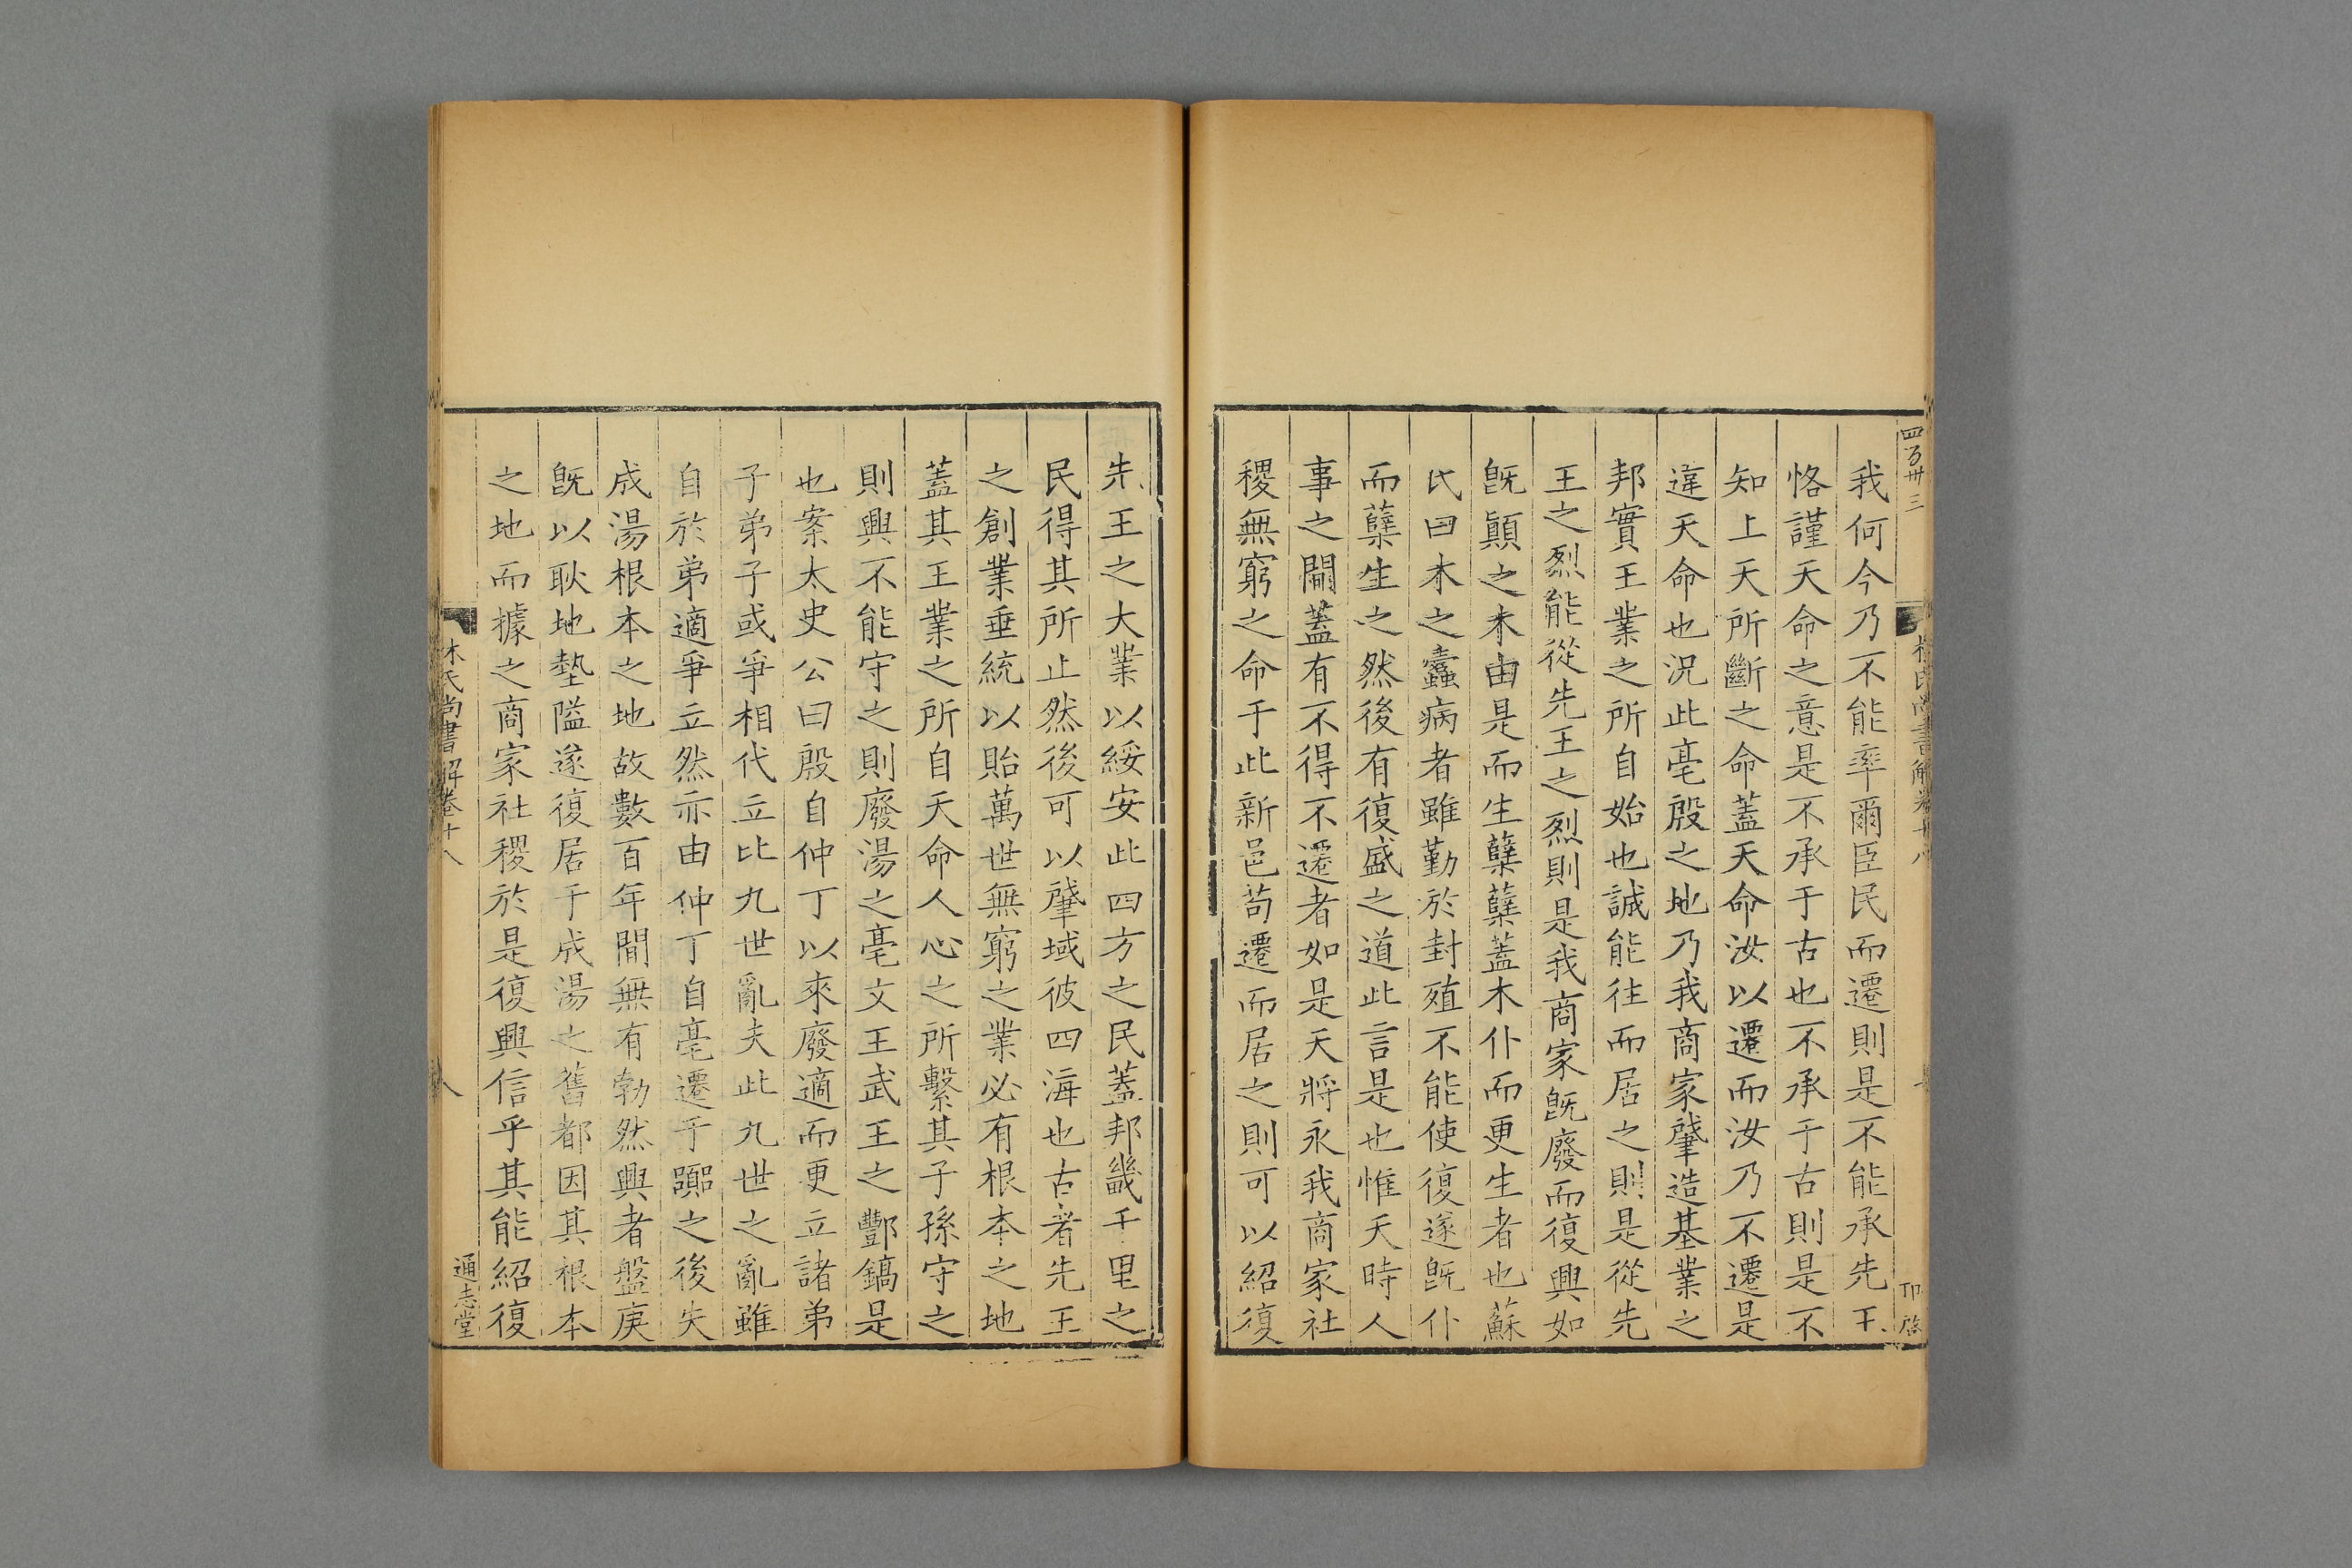 四百卅三
林氏尚書解卷十八
我何今乃不能率爾臣民而遷則是不能承先王
恪謹天命之意是不承于古也不承于古則是不
知上天所斷之命蓋天命汝以遷而汝乃不遷是
違天命也況此亳殷之地乃我商家肇造基業之
邦實王業之所自始也誠能往而居之則是從先
王之烈能從先王之烈則是我商家旣廢而復興如
旣顚之木由是而生蘖蘖蓋木仆而更生者也蘇
氏曰木之蠹病者雖勤於封殖不能使復遂旣仆
而蘖生之然後有復盛之道此言是也惟天時人
事之開蓋有不得不遷者如是天將永我商家社
稷無窮之命于此新邑苟遷而居之則可以紹復
先王之大業以綏安此四方之民蓋邦畿千里之
民得其所止然後可以肇域彼四海也古者先王
之創業垂統以貽萬世無窮之業必有根本之地
蓋其王業之所自天命人心之所繫其子孫守之
則興不能守之則廢湯之亳文王武王之酆鎬是
也案太史公曰殷自仲丁以來廢適而更立諸弟
子弟子或爭相代立比九世亂夫此九世之亂雖
自於弟適爭立然亦由仲丁自亳遷于嚻之後失
成湯根本之地故數百年間無有勃然興者盤庚
旣以耿地墊隘遂復居于成湯之舊都因其根本
之地而據之商家社稷於是復興信乎其能紹復
林氏尚書解卷十八
八
通志堂